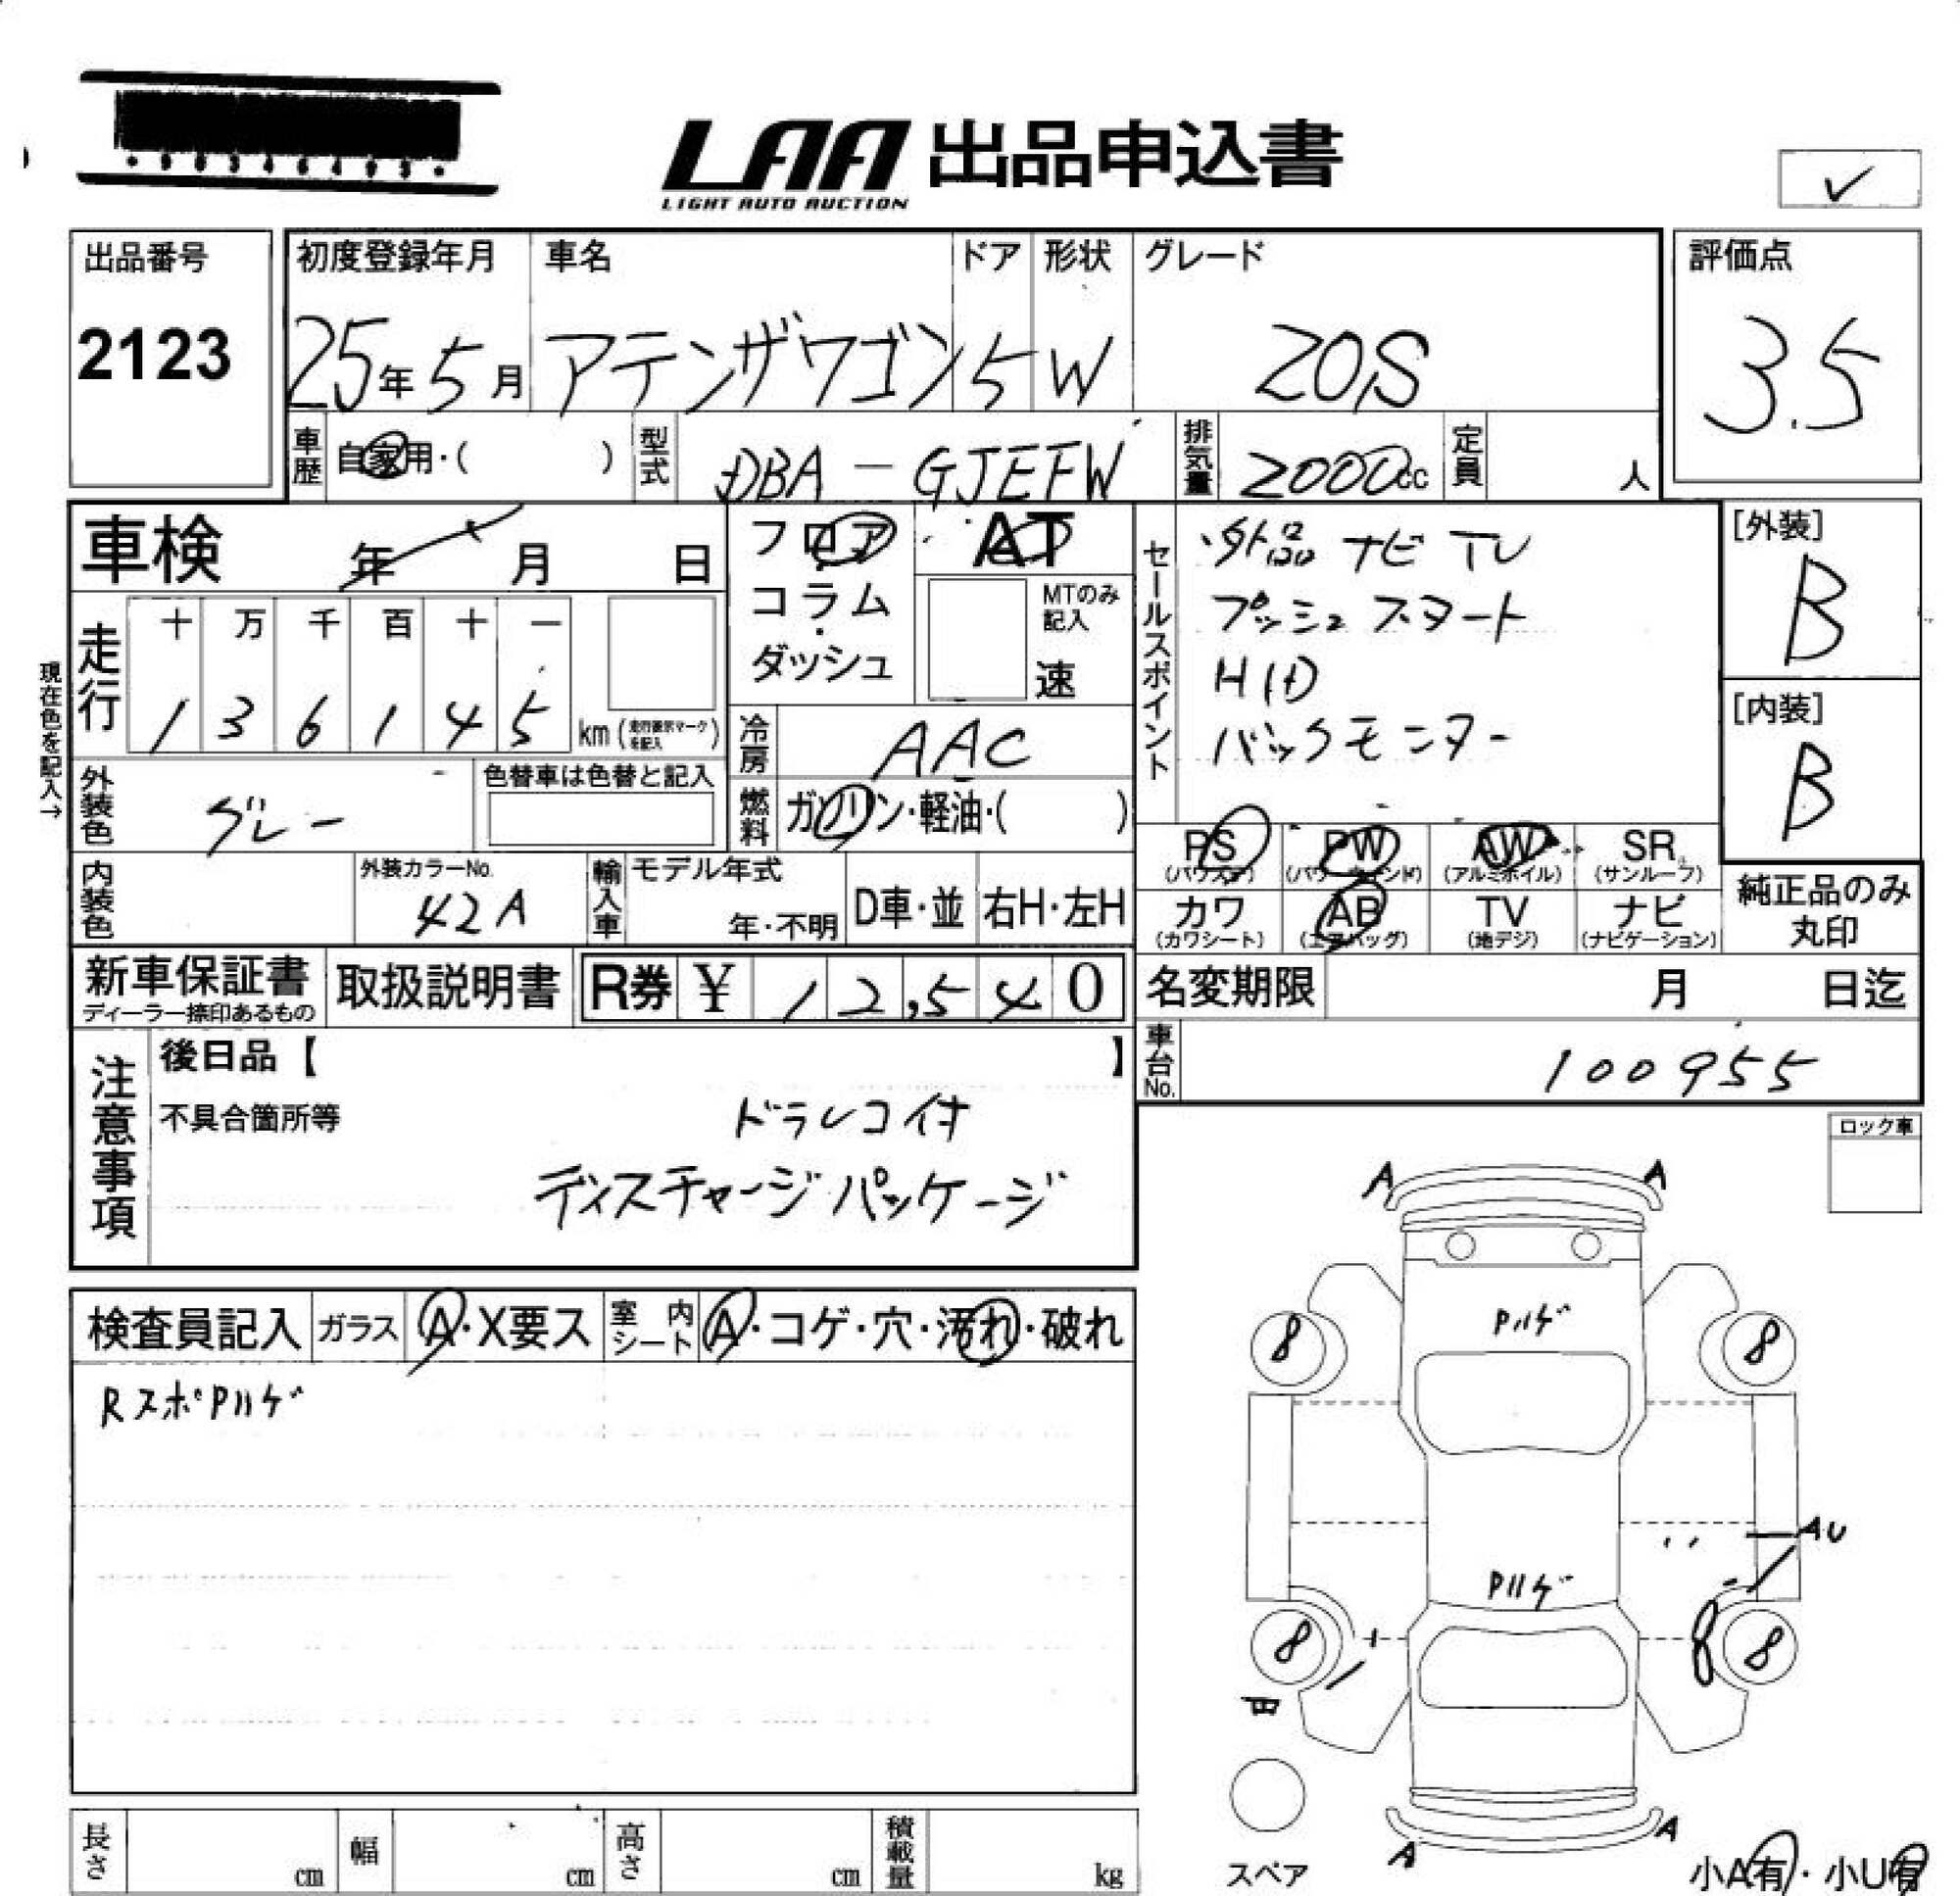 LAA 出品申込書
LIGHT AUTO AUCTION
✓
出品番号
2123
初度登録年月 車名 ドア 形状 グレード
25年5月 アテンザワゴン 5 W 20S
評価点
3.5
車歴 自家用・( ) 型式 DBA-GJEFW 排気量 2000cc 定員 人
車検 年 月 日
フロア・コラム・ダッシュ
AT
MTのみ記入
速
現在色を記入→
走行 十 万 千 百 十 一
1 3 6 1 4 5 km(走行表示マークを記入)
冷房 AAC
外装色 グレー 色替車は色替と記入
燃料 ガソリン・軽油・( )
内装色 外装カラーNo. 42A
輸入車 モデル年式 年・不明 D車・並 右H・左H
セールスポイント
外品 ナビ TV
プッシュスタート
HID
バックモニター
[外装]
B
[内装]
B
PS (パワステ) PW (パワーウィンド) AW (アルミホイル) SR (サンルーフ)
カワ (カワシート) AB (エアバッグ) TV (地デジ) ナビ (ナビゲーション)
純正品のみ
丸印
新車保証書 取扱説明書 R券 ¥ 12,540
ディーラー捺印あるもの
名変期限 月 日迄
車台No. 100955
注意事項
後日品【 】
不具合箇所等
ドラレコ付
ディスチャージパッケージ
ロック車
検査員記入 ガラス A・X要ス 室内シート A・コゲ・穴・汚れ・破れ
RスポPハゲ
A A
Pハゲ
8 8
AU
Pハゲ
8 8
A A
スペア
小A有・小U有
長さ cm 幅 cm 高さ cm 積載量 kg